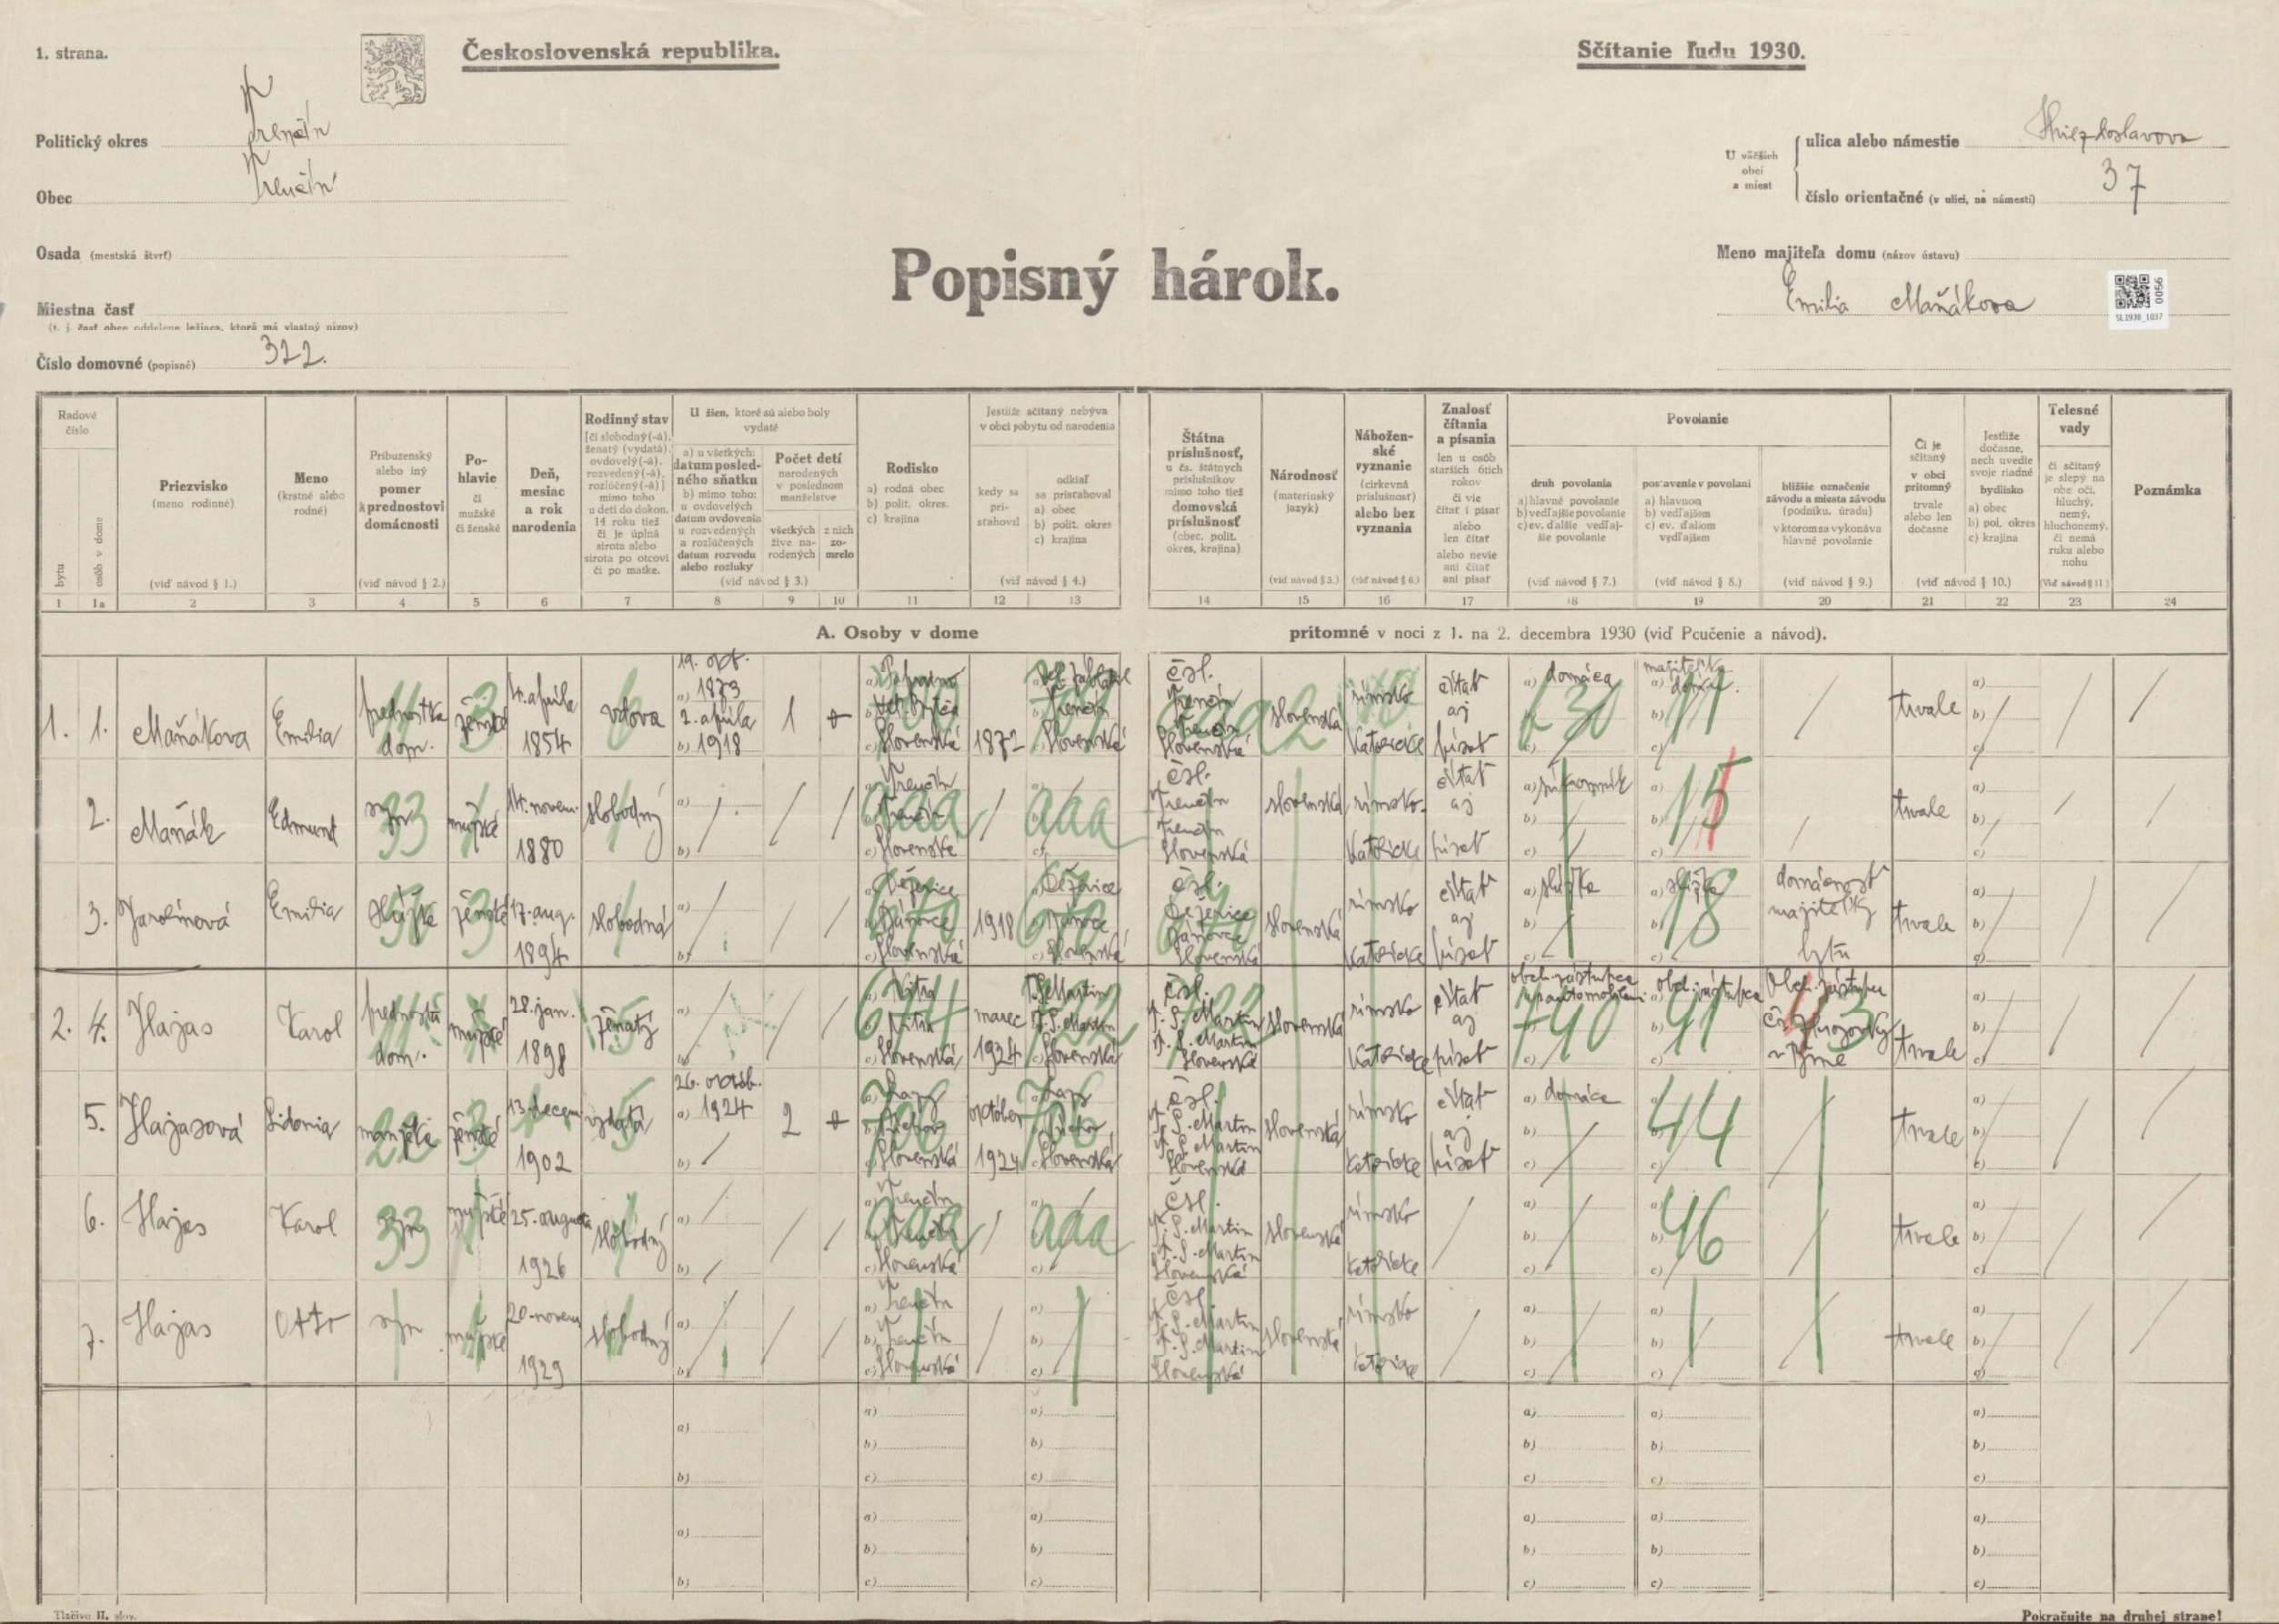 1. strana.
Československá republika.
Sčítanie ľudu 1930.
Politický okres Trenčín
Obec Trenčín
Osada (mestská štvrť)
Miestna časť
(t. j. časť obce oddelene ležiaca, ktorá má vlastný názov)
Číslo domovné (popisné) 322.
Popisný hárok.
U väčších obcí a miest
ulica alebo námestie Hviezdoslavova
číslo orientačné (v ulici, na námestí) 37
Meno majiteľa domu (názov ústavu)
Emilia Maňákova
0056
SL1930_1037
Radové číslo
bytu
osôb v dome
Priezvisko
(meno rodinné)
(viď návod § 1.)
Meno
(krstné alebo rodné)
Príbuzenský alebo iný pomer k prednostovi domácnosti
(viď návod § 2.)
Pohlavie
či mužské či ženské
Deň, mesiac a rok narodenia
Rodinný stav
[či slobodný(-á), ženatý (vydatá), ovdovelý(-á), rozvedený(-á), rozlúčený(-á)]
mimo toho u detí do dokon. 14 roku tiež či je úplná sirota alebo sirota po otcovi či po matke.
U žien, ktoré sú alebo boly vydaté
a) u všetkých: datum posledného sňatku
b) mimo toho: u ovdovelých datum ovdovenia u rozvedených a rozlúčených datum rozvodu alebo rozluky
Počet detí narodených v poslednom manželstve
všetkých žive narodených
z nich zomrelo
(viď návod § 3.)
Rodisko
a) rodná obec
b) polit. okres.
c) krajina
Jestliže sčítaný nebýva v obci pobytu od narodenia
kedy sa prisťahoval
odkiaľ sa prisťahoval
a) obec
b) polit. okres
c) krajina
(viď návod § 4.)
Štátna príslušnosť,
u čs. štátnych príslušníkov mimo toho tiež domovská príslušnosť
(obec, polit. okres, krajina)
Národnosť
(materinský jazyk)
(viď návod § 5.)
Náboženské vyznanie
(cirkevná príslušnosť)
alebo bez vyznania
(viď návod § 6.)
Znalosť čítania a písania
len u osôb starších 6tich rokov
či vie čítať i písať alebo len čítať alebo nevie ani čítať ani písať
Povolanie
druh povolania
a) hlavné povolanie
b) vedľajšie povolanie
c) ev. ďalšie vedľajšie povolanie
(viď návod § 7.)
postavenie v povolaní
a) hlavnom
b) vedľajšom
c) ev. ďalšom vedľajšom
(viď návod § 8.)
bližšie označenie závodu a miesta závodu (podniku, úradu)
v ktorom sa vykonáva hlavné povolanie
(viď návod § 9.)
Či je sčítaný v obci prítomný
trvale alebo len dočasne
Jestliže dočasne, nech uvedie svoje riadné bydlisko
a) obec
b) pol. okres
c) krajina
(viď návod § 10.)
Telesné vady
či sčítaný je slepý na obe oči, hluchý, nemý, hluchonemý, či nemá ruku alebo nohu
(Viď návod § 11.)
Poznámka
1 1a 2 3 4 5 6 7 8 9 10 11 12 13 14 15 16 17 18 19 20 21 22 23 24
A. Osoby v dome prítomné v noci z 1. na 2. decembra 1930 (viď Poučenie a návod).
1. 1. Maňákova Emilia prednostka dom. ženské 4. apríla 1854 vdova a) 19. okt. 1873 b) 2. apríla 1918 1 Slovenská 1872 Trenčín Slovenská čsl. Trenčín Trenčín Slovenská slovenská rímsko katolícke čítať aj písať domáca majiteľka domu trvale
2. Maňák Edmund syn mužské 14. novem. 1880 slobodný Trenčín Trenčín Slovenská čsl. Trenčín Trenčín Slovenská slovenská rímsko katolícke čítať aj písať súkromník 15 trvale
3. Jarolínová Emilia slúžka ženské 17. aug. 1894 slobodná Bánovce Slovenská 1918 Bánovce Slovenská čsl. Bánovce Slovenská slovenská rímsko katolícke čítať aj písať slúžka slúžka 18 domácnosť majiteľky bytu trvale
2. 4. Hajas Karol prednosta dom. mužské 28. jan. 1898 ženatý Nitra Nitra Slovenská marec 1924 T. S. Martin T. S. Martin Slovenská čsl. T. S. Martin T. S. Martin Slovenská slovenská rímsko katolícke čítať aj písať obch. zástupca obch. zástupca trvale
5. Hajasová Sidonia manželka ženské 13. decem. 1902 vydatá a) 26. októb. 1924 2 Slovenská október 1924 Slovenská čsl. T. S. Martin T. S. Martin Slovenská slovenská rímsko katolícke čítať aj písať domáca 44 trvale
6. Hajas Karol syn mužské 25. augusta 1926 slobodný Trenčín Trenčín Slovenská čsl. T. S. Martin T. S. Martin Slovenská slovenská rímsko katolícke 46 trvale
7. Hajas Otto syn mužské 20. novem. 1929 slobodný Trenčín Trenčín Slovenská čsl. T. S. Martin T. S. Martin Slovenská slovenská rímsko katolícke trvale
Tlačivo II. slov.
Pokračujte na druhej strane!